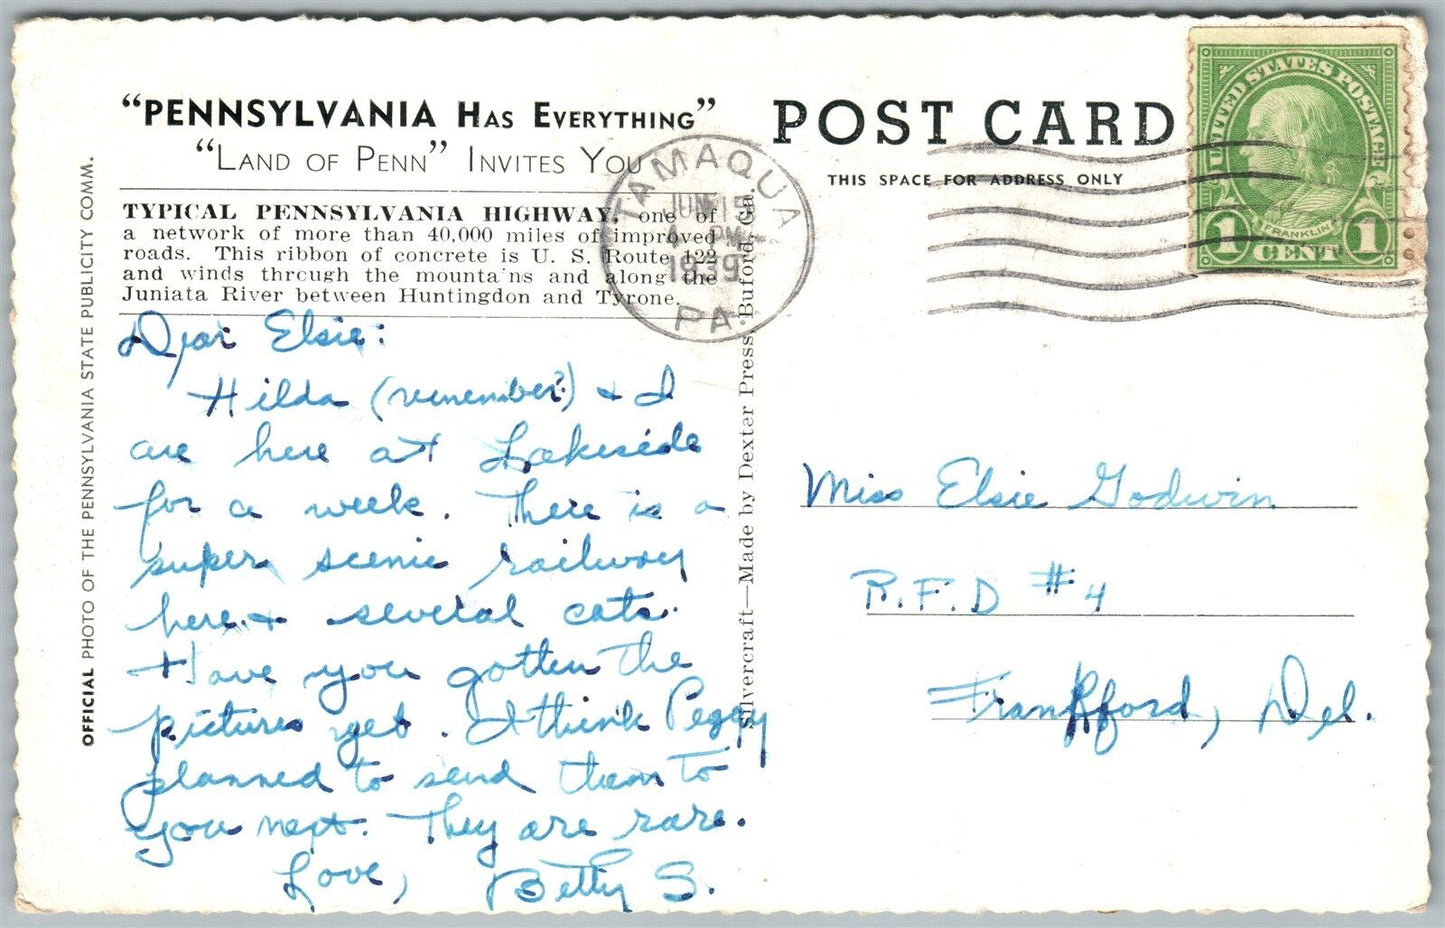 "PENNSYLVANIA HAS EVERYTHING"
"LAND OF PENN" INVITES YOU
TYPICAL PENNSYLVANIA HIGHWAY, one of
a network of more than 40,000 miles of improved
roads. This ribbon of concrete is U. S. Route 122
and winds through the mountains and along the
Juniata River between Huntingdon and Tyrone.
OFFICIAL PHOTO OF THE PENNSYLVANIA STATE PUBLICITY COMM.
Dear Elsie:
Hilda (remember?) & I
are here at Lakeside
for a week. There is a
super scenic railway
here & several cats.
Have you gotten the
pictures yet. I think Peggy
planned to send them to
you next. They are rare.
Love, Betty S.
Silvercraft—Made by Dexter Press, Buford, Ga.
POST CARD
THIS SPACE FOR ADDRESS ONLY
TAMAQUA
JUN 15
4 PM
1939
PA.
UNITED STATES POSTAGE
FRANKLIN
1 CENT 1
Miss Elsie Godwin
R.F.D #4
Frankford, Del.